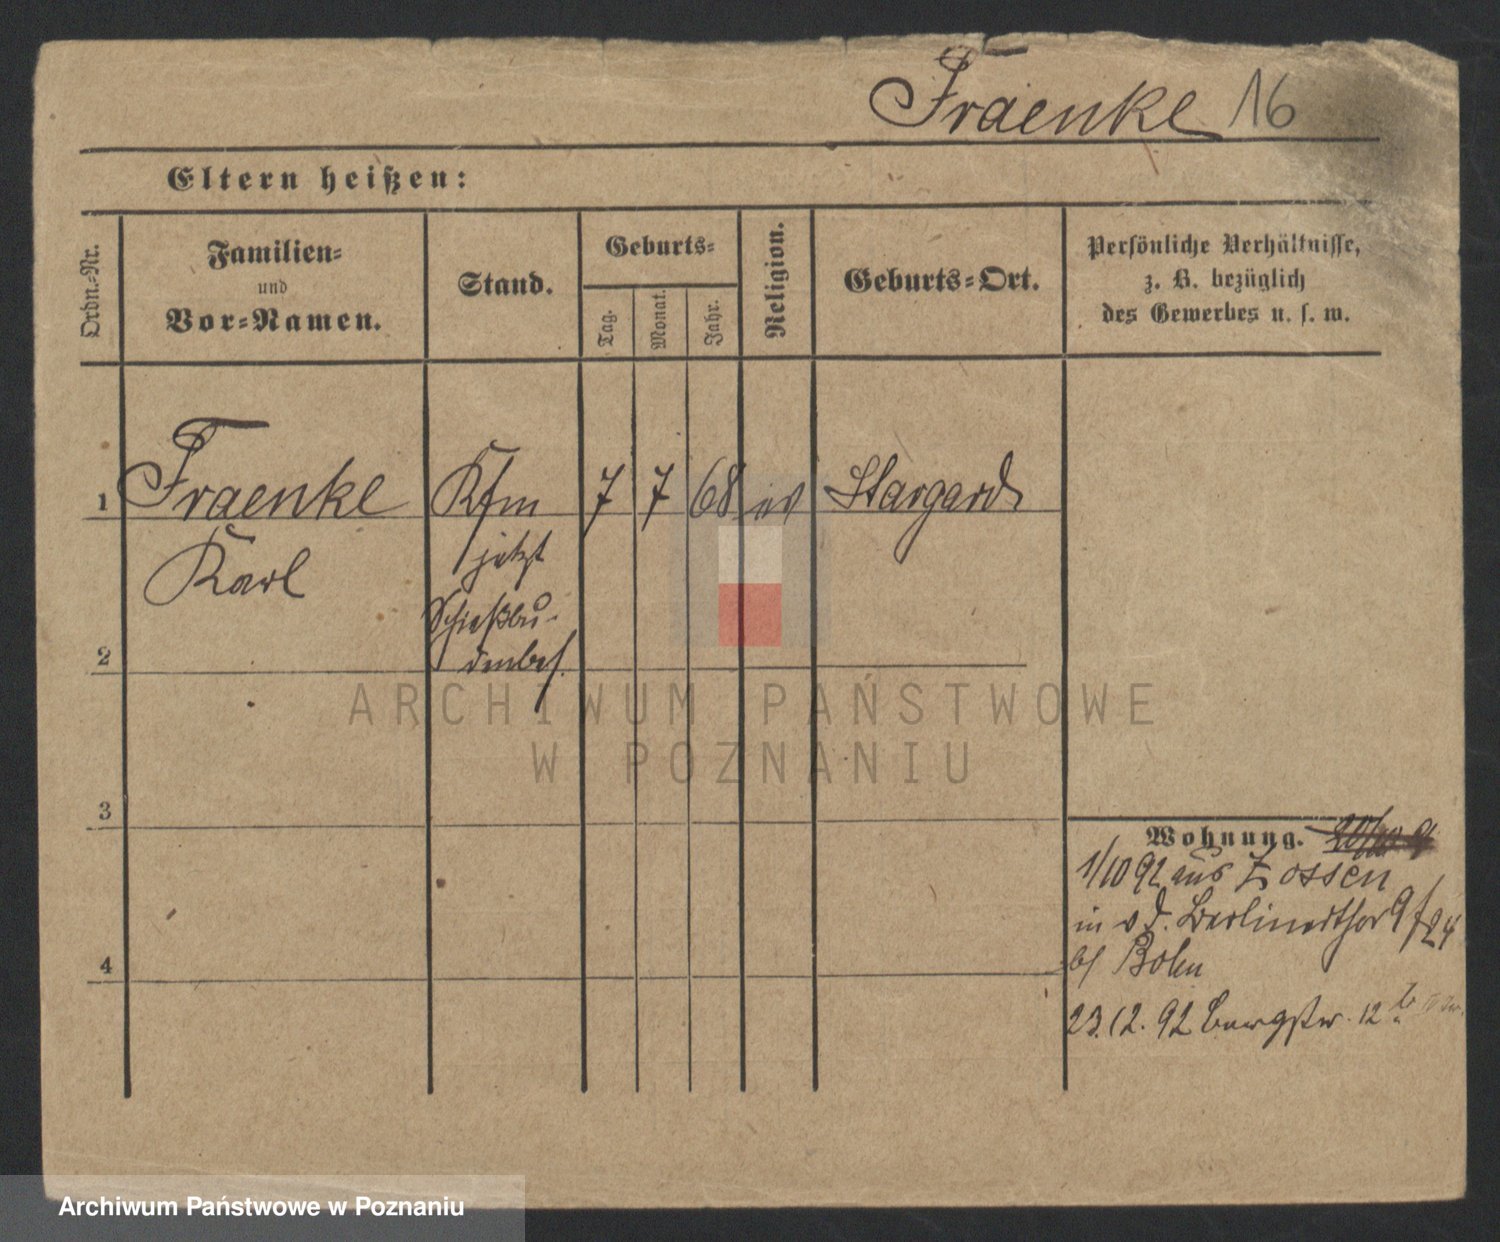 Fraenke 16
Eltern heißen:
Ordn.-Nr.
Familien-
und
Vor-Namen.
Stand.
Geburts-
Tag.
Monat.
Jahr.
Religion.
Geburts-Ort.
Persönliche Verhältnisse,
z. B. bezüglich
des Gewerbes u. s. w.
1 Fraenke Kfm 7 7 68 ev Stargard
Karl
jetzt
Schießbu-
denbes.
2
3
4
Wohnung.
1/10 92 aus Zossen
in v d. Berlinerthor 9/24
b/ Bohn
23.12.92 Bergstr. 12 b
ARCHIWUM PAŃSTWOWE
W POZNANIU
Archiwum Państwowe w Poznaniu